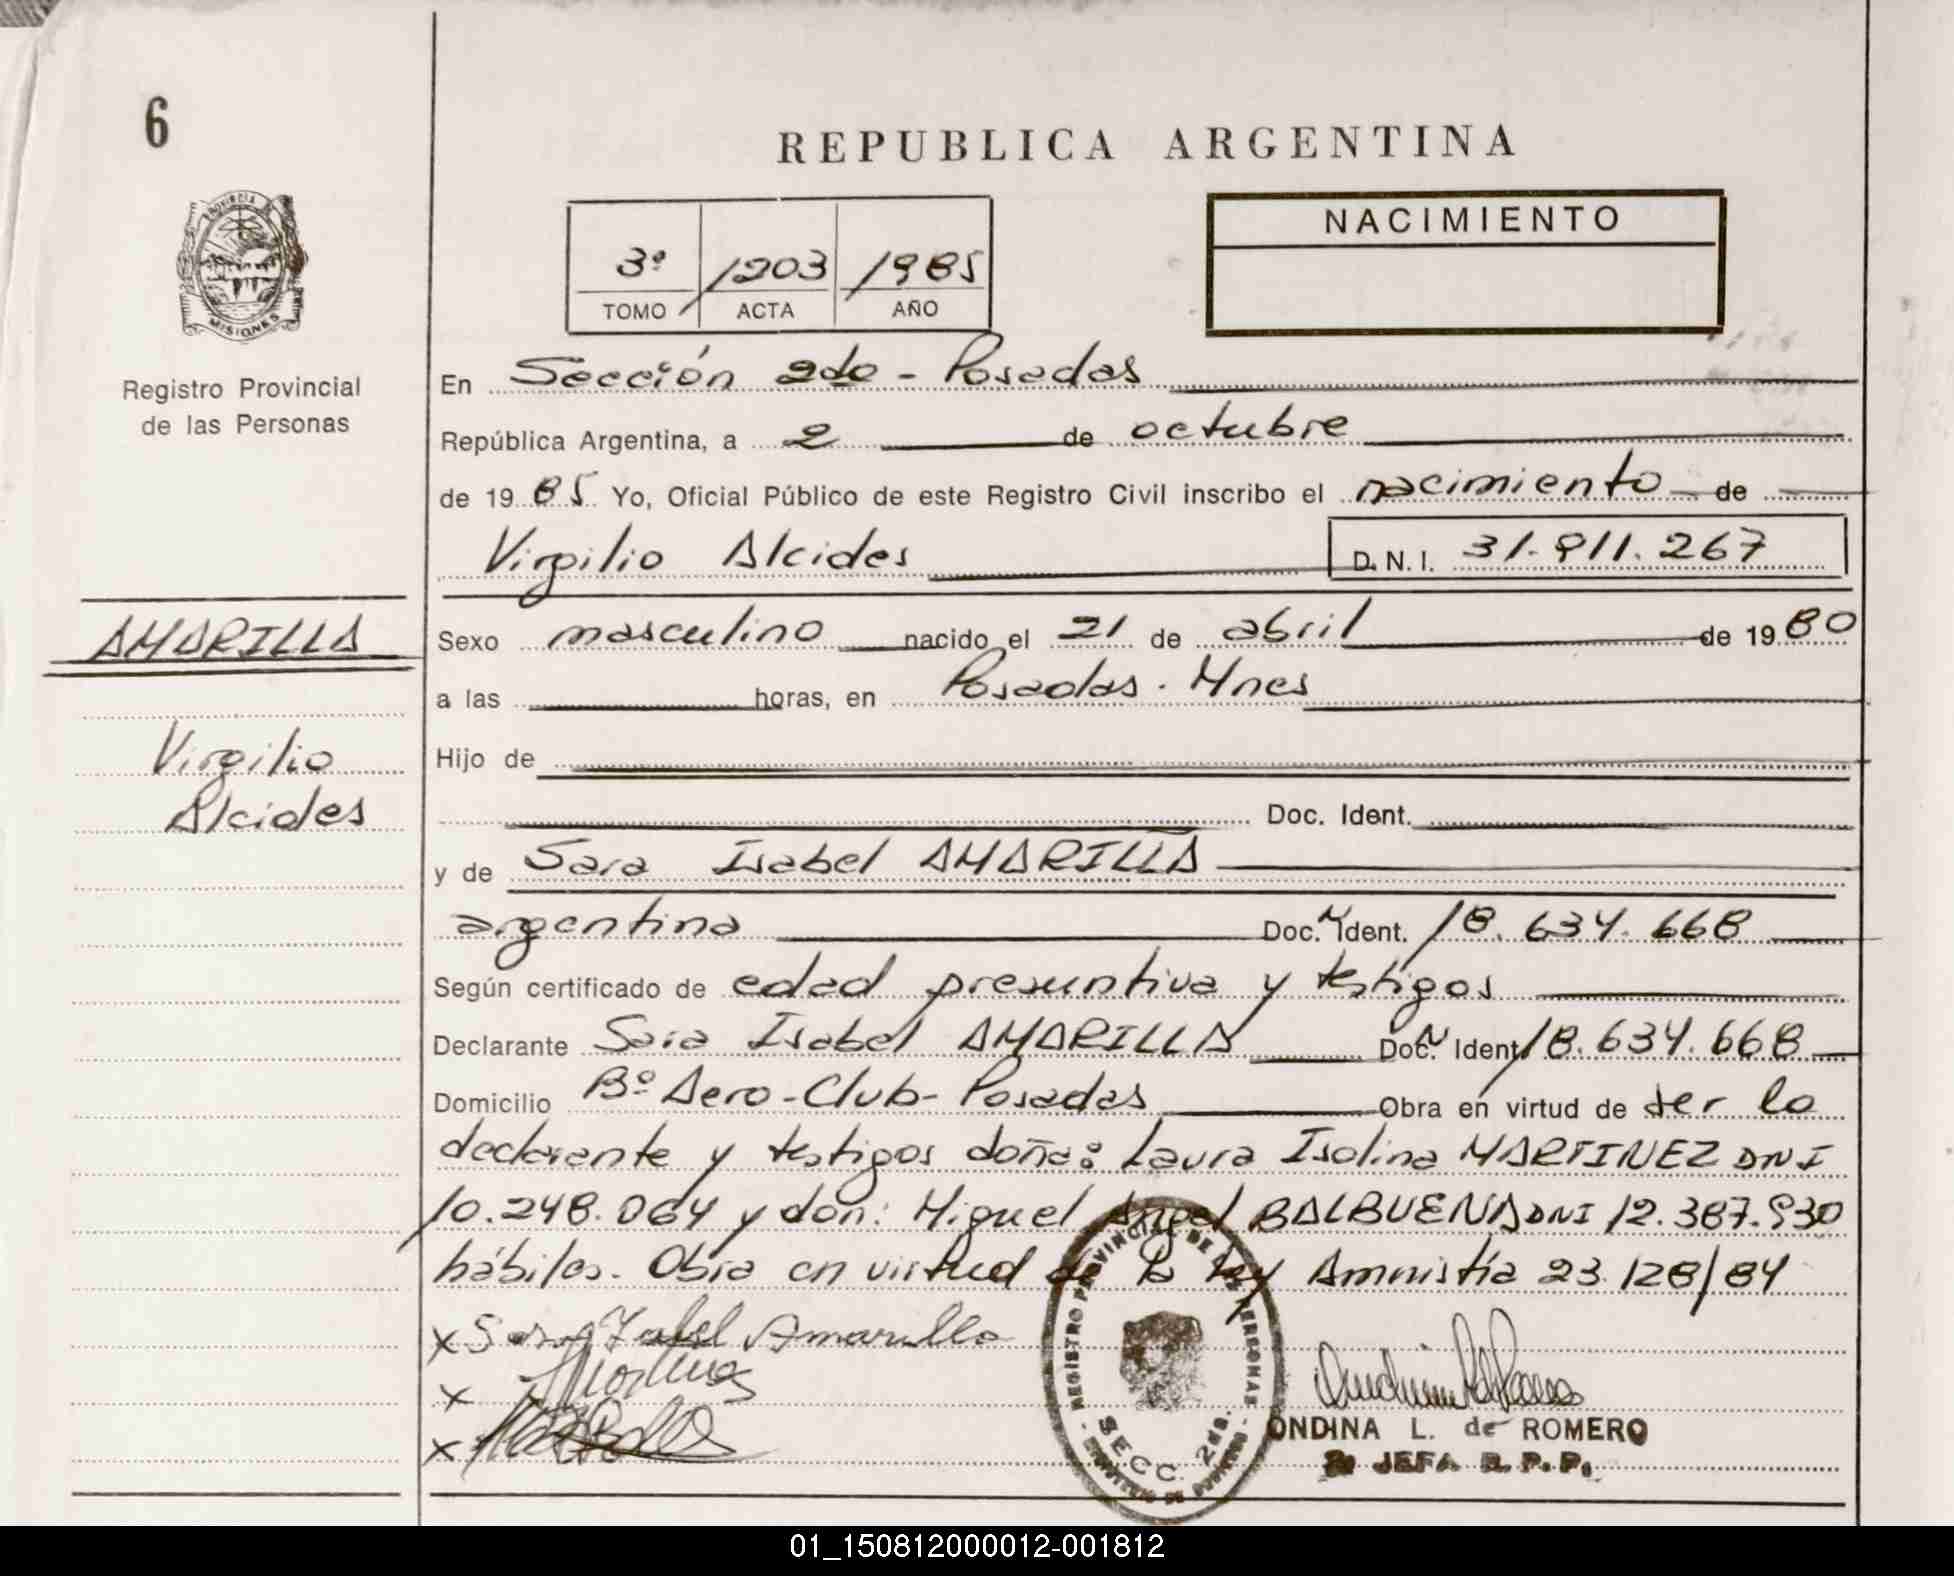 6
REPUBLICA ARGENTINA
PROVINCIA
MISIONES
Registro Provincial
de las Personas
3º /1203 /1985
TOMO ACTA AÑO
NACIMIENTO
En Sección 2da - Posadas
República Argentina, a 2 de octubre
de 1985 Yo, Oficial Público de este Registro Civil inscribo el nacimiento de
Virgilio Alcides D.N.I. 31.911.267
AMARILLA
Virgilio
Alcides
Sexo masculino nacido el 21 de abril de 1980
a las horas, en Posadas. Mnes
Hijo de
Doc. Ident.
y de Sara Isabel AMARILLA
argentina Doc. N Ident. 18.634.668
Según certificado de edad presuntiva y testigos
Declarante Sara Isabel AMARILLA Doc. N Ident. 18.634.668
Domicilio Bº Aero-Club-Posadas Obra en virtud de ser la
declarante y testigos doña: Laura Isolina MARTINEZ DNI
10.248.064 y don: Miguel Angel BALBUENA DNI 12.387.930
hábiles. Obra en virtud de la ley Amnistía 23.128/84
x Sara Isabel Amarilla
x
x
REGISTRO PROVINCIAL DE LAS PERSONAS
SECC. 2da.
ONDINA L. de ROMERO
JEFA R.P.P.
01_150812000012-001812